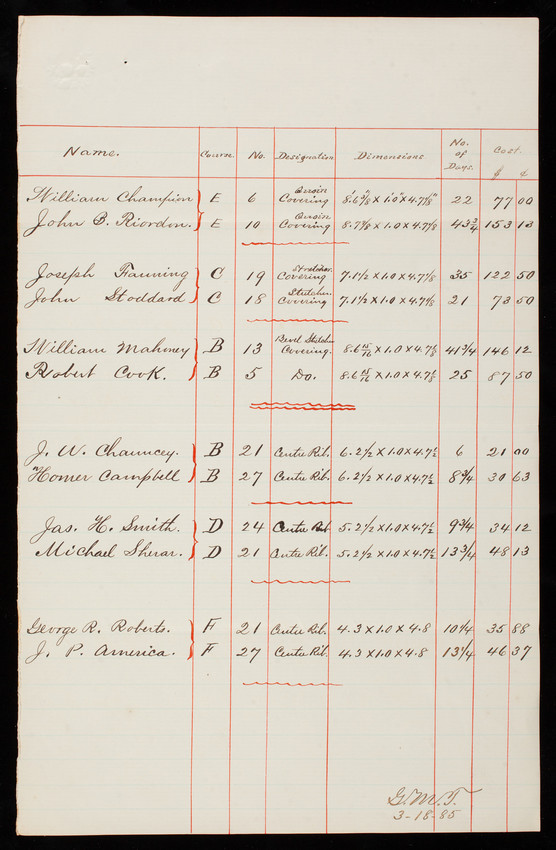 Name. Course No. Designation Dimensions No. of Days. Cost. $ ¢
William Champion } E 6 Covering 8'.6 5/8" x 1'.0" x 4'.7 1/8" 22 77 00
John B. Riordon. } E 10 Covering 8.7 5/8 x 1.0 x 4.7 1/8 43 3/4 153 13
Joseph Fanning } C 19 Stretcher Covering 7.1 1/2 x 1.0 x 4.7 1/8 35 122 50
John Stoddard } C 18 Stretcher Covering 7.1 1/2 x 1.0 x 4.7 1/8 21 73 50
William Mahoney } B 13 Bevel Stretcher Covering. 8.6 15/16 x 1.0 x 4.7 1/8 41 3/4 146 12
Robert Cook. } B 5 Do. 8.6 15/16 x 1.0 x 4.7 1/8 25 87 50
J. W. Chauncey. } B 21 Centre Rib. 6.2 1/2 x 1.0 x 4.7 1/2 6 21 00
Homer Campbell } B 27 Centre Rib. 6.2 1/2 x 1.0 x 4.7 1/2 8 3/4 30 63
Jas. H. Smith. } D 24 Centre Rib 5.2 1/2 x 1.0 x 4.7 1/2 9 3/4 34 12
Michael Sherar. } D 21 Centre Rib. 5.2 1/2 x 1.0 x 4.7 1/2 13 3/4 48 13
George R. Roberts. } F 21 Centre Rib. 4.3 x 1.0 x 4.8 10 1/4 35 88
J. P. America. } F 27 Centre Rib. 4.3 x 1.0 x 4.8 13 1/4 46 37
G.M.T.
3-18-85